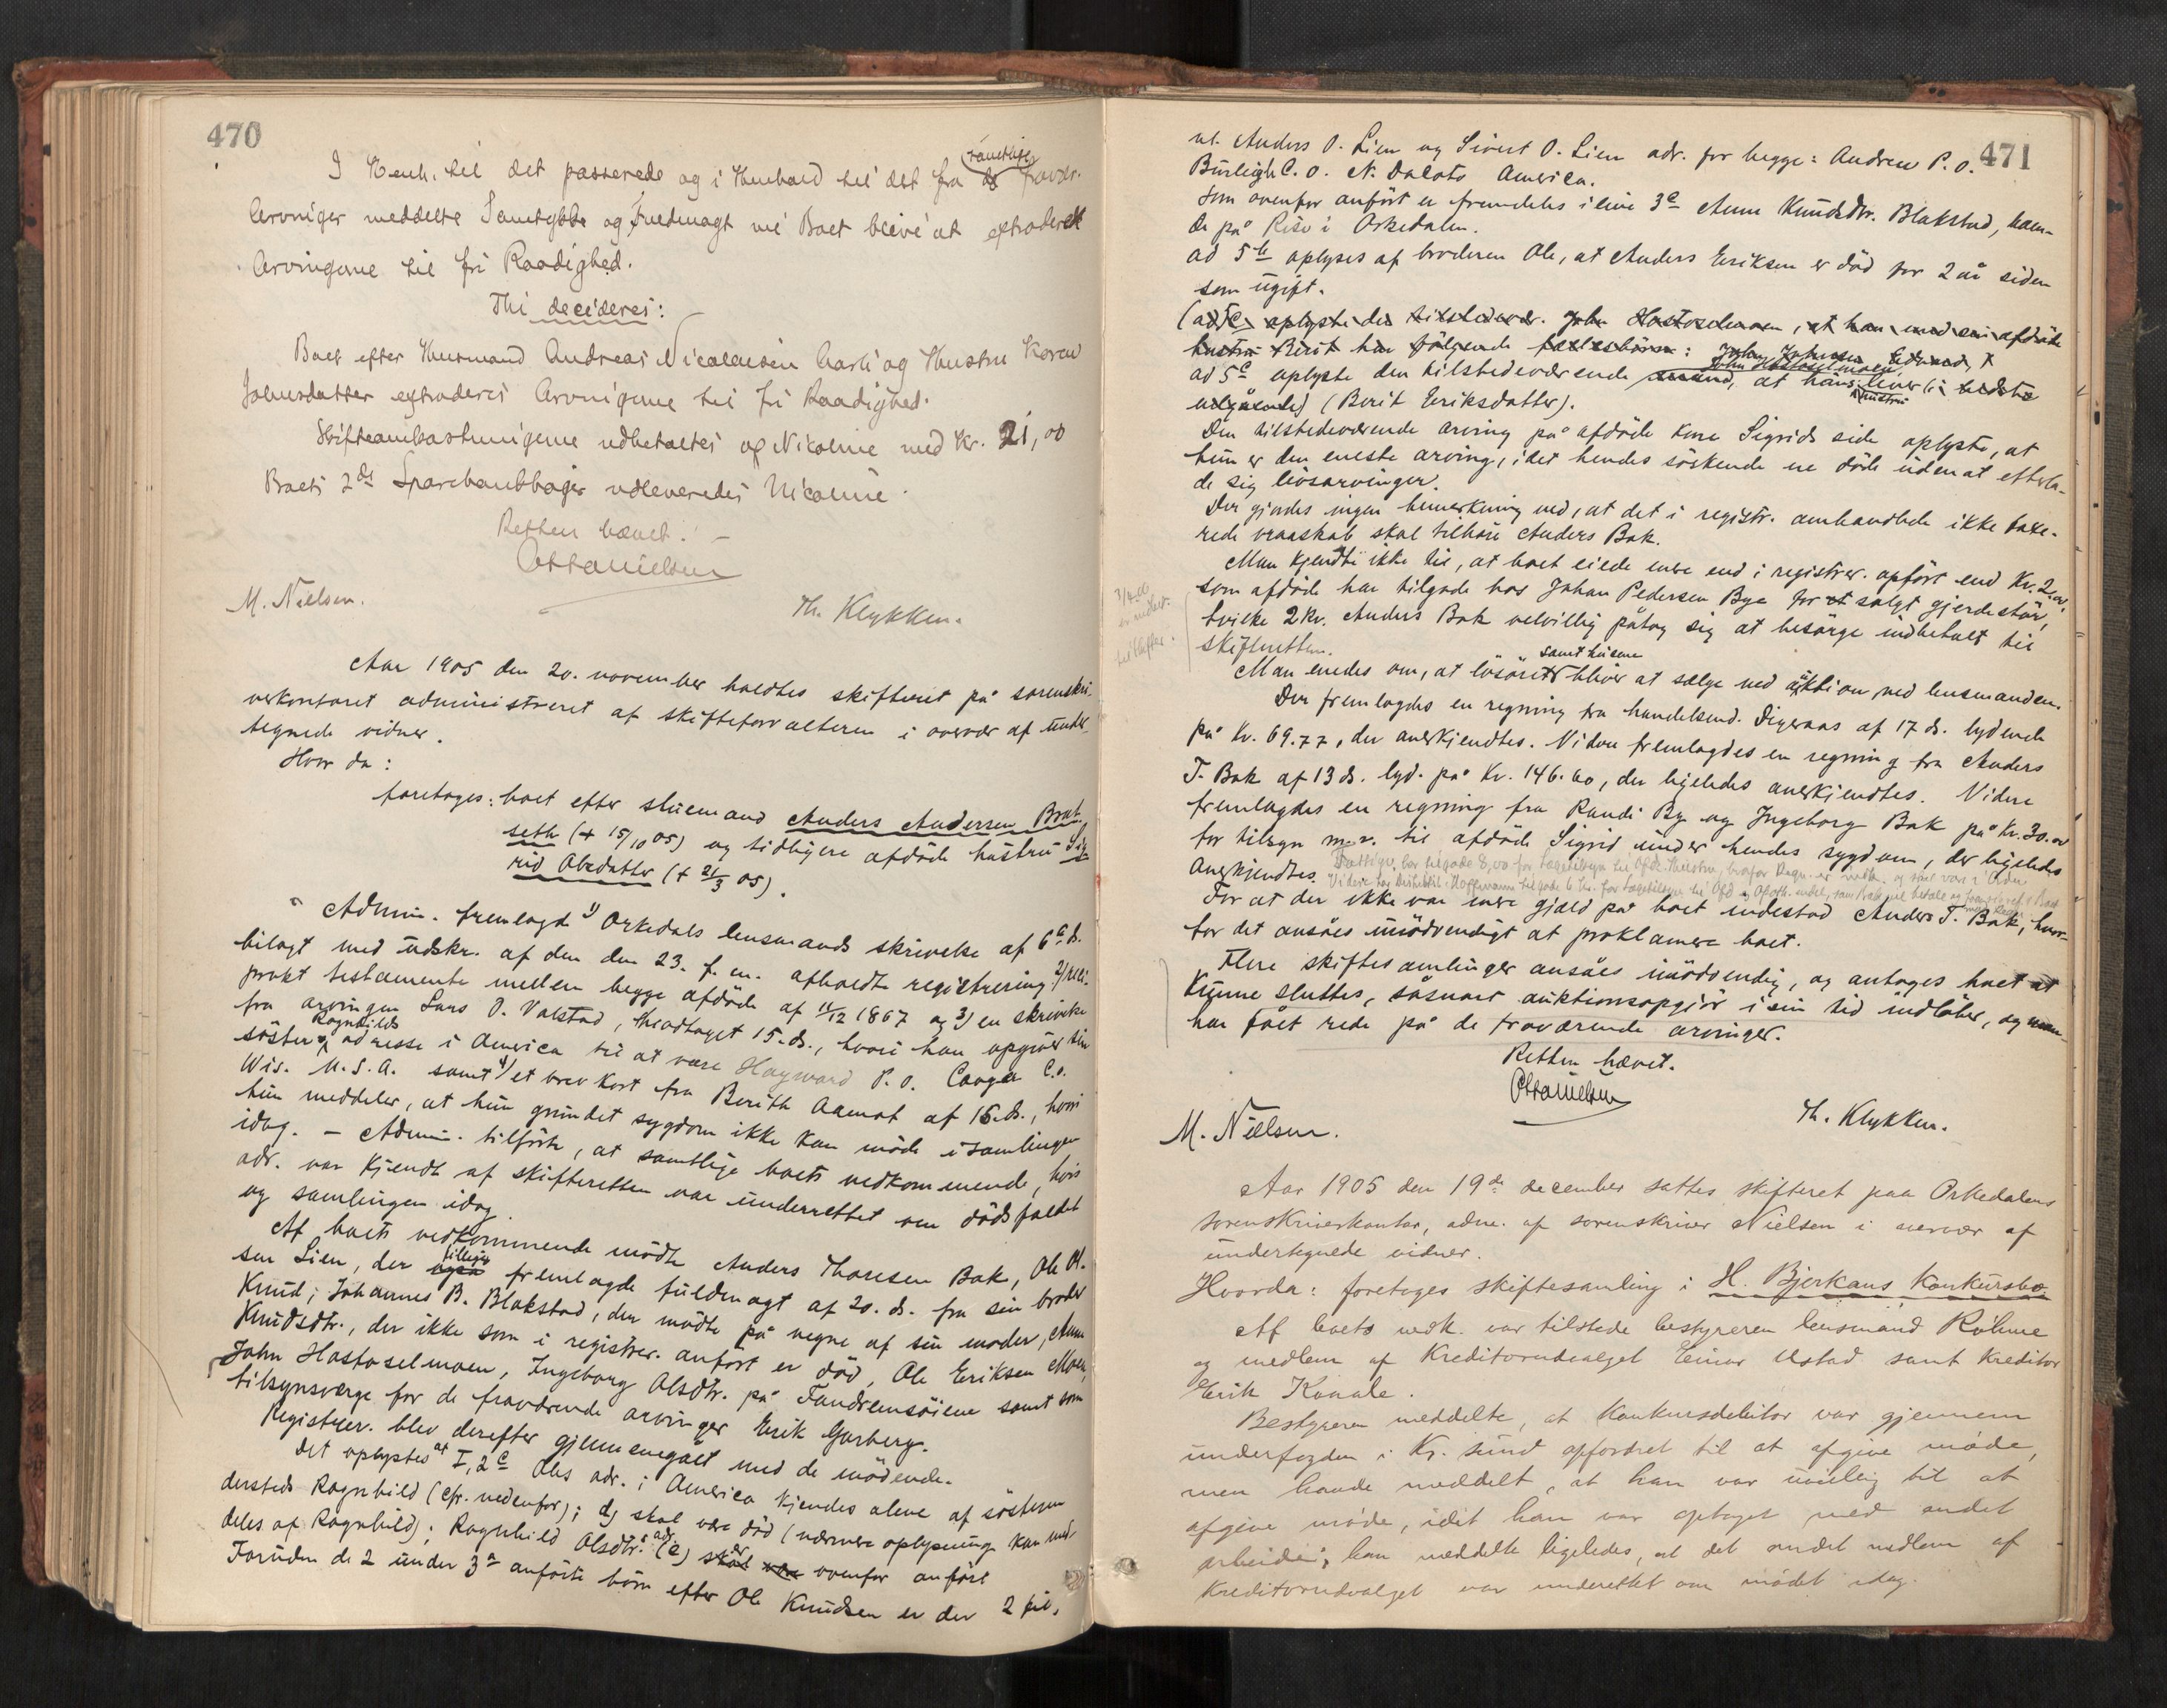 470
I Henh. til det passerede og i Henhold til det fra samtlige fravær.
Arvinger meddelte Samtykke og Fuldmagt vil Boet blive at extradere
Arvingerne til fri Raadighed.
Thi decideres:
Boet efter Husmand Andreas Nicolaisen Aarli og Hustru Karen
Johnsdatter extraderes Arvingerne til fri Raadighed.
Skifteomkostningerne udbetaltes af Nicoline med Kr. 21,00
Boets 2de Sparebankbøger udleveredes Nicoline.
Retten hævet. –
Otto Nielsen
M. Nielsen. Th. Klykken.
Aar 1905 den 20. november holdtes skifteret på sorenskri-
verkontoret administreret af skifteforvalteren i overvær af under-
tegnede vidner.
Hvor da:
foretoges: boet efter stuemand Anders Andersen Brat-
seth (+ 15/10 05) og tidligere afdöde hustru Sig-
rid Olsdatter (+ 21/3 05).
Admin. fremlagde 1) Orkedals lensmands skrivelse af 6te ds.
bilagt med udskr. af den den 23. f. m. afholdte registrering 2)
prokt testamente mellem begge afdöde af 11/12 1867 og 3) en skrivelse
fra arvingen Lars O. Valstad, modtaget 15. ds., hvori han opgiver sin
söster Ragnhilds adresse i America til at være Hayward P. O.
Wis. U. S. A. samt 4) et brevkort fra Berith Aamot af 15. ds., hvori
hun meddeler, at hun grundet sygdom ikke kan möde i samlingen
idag. – Admin. tilförte, at samtlige boets vedkommende, hvis
adr. var kjendt af skifteretten var underrettet om dödsfaldet
og samlingen idag.
Af boets vedkommende mödte Anders Thoresen Bak, Ole Ol-
sen Lien, der tillige fremlagde fuldmagt af 20. ds. fra sin broder
Knud; Johannes B. Blakstad, der mödte på vegne af sin moder, Anne
Knudsdtr., der ikke som i registrer. anfört er död, Ole Eriksen Moen,
John Hastoselmoen, Ingeborg Olsdtr. på Fandremsöiene samt som
tilsynsværge for de fraværende arvinger Erik Garberg.
Registrer. blev derefter gjennemgået med de mödende.
Det oplystes at I, 2c Oles adr. i America kjendes alene af sösteren
dersteds Ragnhild (cfr. nedenfor); d) skal være död (nærmere oplysninge kan med-
deles af Ragnhild); Ragnhild Olsdtr. adr. (e) er ovenfor anfört
Foruden de 2 under 3a anförte börn efter Ole Knudsen er der 2 til,
471
nl. Anders O. Lien og Sivert O. Lien adr. for begge: Andrew P. O.
Burleigh C. o. N. Dacota America.
Som ovenfor anfört er fremdeles i live 3c Anne Knudsdtr. Blakstad, boen-
de på Risö i Orkedalen.
ad 5b oplyses af broderen Ole, at Anders Eriksen er död for 2 år siden
som ugift.
(ad 5c oplyste den tilstedevær. John Hastoselmoen, at han med sin afdöde
hustru Berit har fölgende fællesbörn: John Johnsen Edvard,
ad 5c oplyste den tilstedeværende John Hastoselmoen, at hans hustru lever
(Berit Eriksdatter).
Den tilstedeværende arving på afdöde kone Sigrids side oplyste, at
hun er den eneste arving, idet hendes söskende er döde uden at efterla-
de sig livsarvinger.
Der gjordes ingen bemerkning ved, at det i registr. omhandlede ikke taxe-
rede vraaskab skal tilhöre Anders Bak.
Man kjendte ikke til, at boet eiede mere end i registrer. opfört end Kr. 2.00,
som afdöde har tilgode hos Johan Pedersen Bye for solgt gjerdestör,
hvilke 2 kr. Anders Bak velvillig påtog sig at besörge indbetalt til
skifteretten.
Man enedes om, at lösöret samt husene bliver at sælge ved auktion ved lensmanden.
Der fremlagdes en regning fra handelsmd. Digeraas af 17 ds. lydende
på Kr. 69.77, der anerkjendtes. Videre fremlagdes en regning fra Anders
T. Bak af 13 ds. lyd. på Kr. 146.60, der ligeledes anerkjendtes. Videre
fremlagdes en regning fra Randi By og Ingeborg Bak på Kr. 30.00
for tilsyn m. v. til afdöde Sigrid under hendes sygdom, der ligeledes
anerkjendtes.
For at der ikke var mere gjæld på boet indestod Anders T. Bak, hvor-
for det ansåes unödvendigt at proklamere boet.
Flere skiftesamlinger ansåes unödvendig, og antoges boet at
kunne sluttes, såsnart auktionsopgjör i sin tid indlöber, og man
har fået rede på de fraværende arvinger.
Retten hævet.
Otto Nielsen
M. Nielsen. Th. Klykken.
Aar 1905 den 19de december sattes skifteret paa Orkedalens
sorenskriverkontor, adm. af sorenskriver Nielsen i overvær af
undertegnede vidner.
Hvorda: foretoges skiftesamling i H. Bjerkans Konkursbo.
Af boets vedk. var tilstede bestyreren lensmand Röhme
og medlem af Kreditorudvalget Einar Ustad samt Kreditor
Erik Kvaale.
Bestyreren meddelte, at Konkursdebitor var gjennem
underfogden i Kr. sund opfordret til at afgive möde,
men havde meddelt, at han var uvillig til at
afgive möde, idet han var optaget med andet
arbeide; han meddelte ligeledes, at det andet medlem af
Kreditorudvalget var underettet om mödet idag.